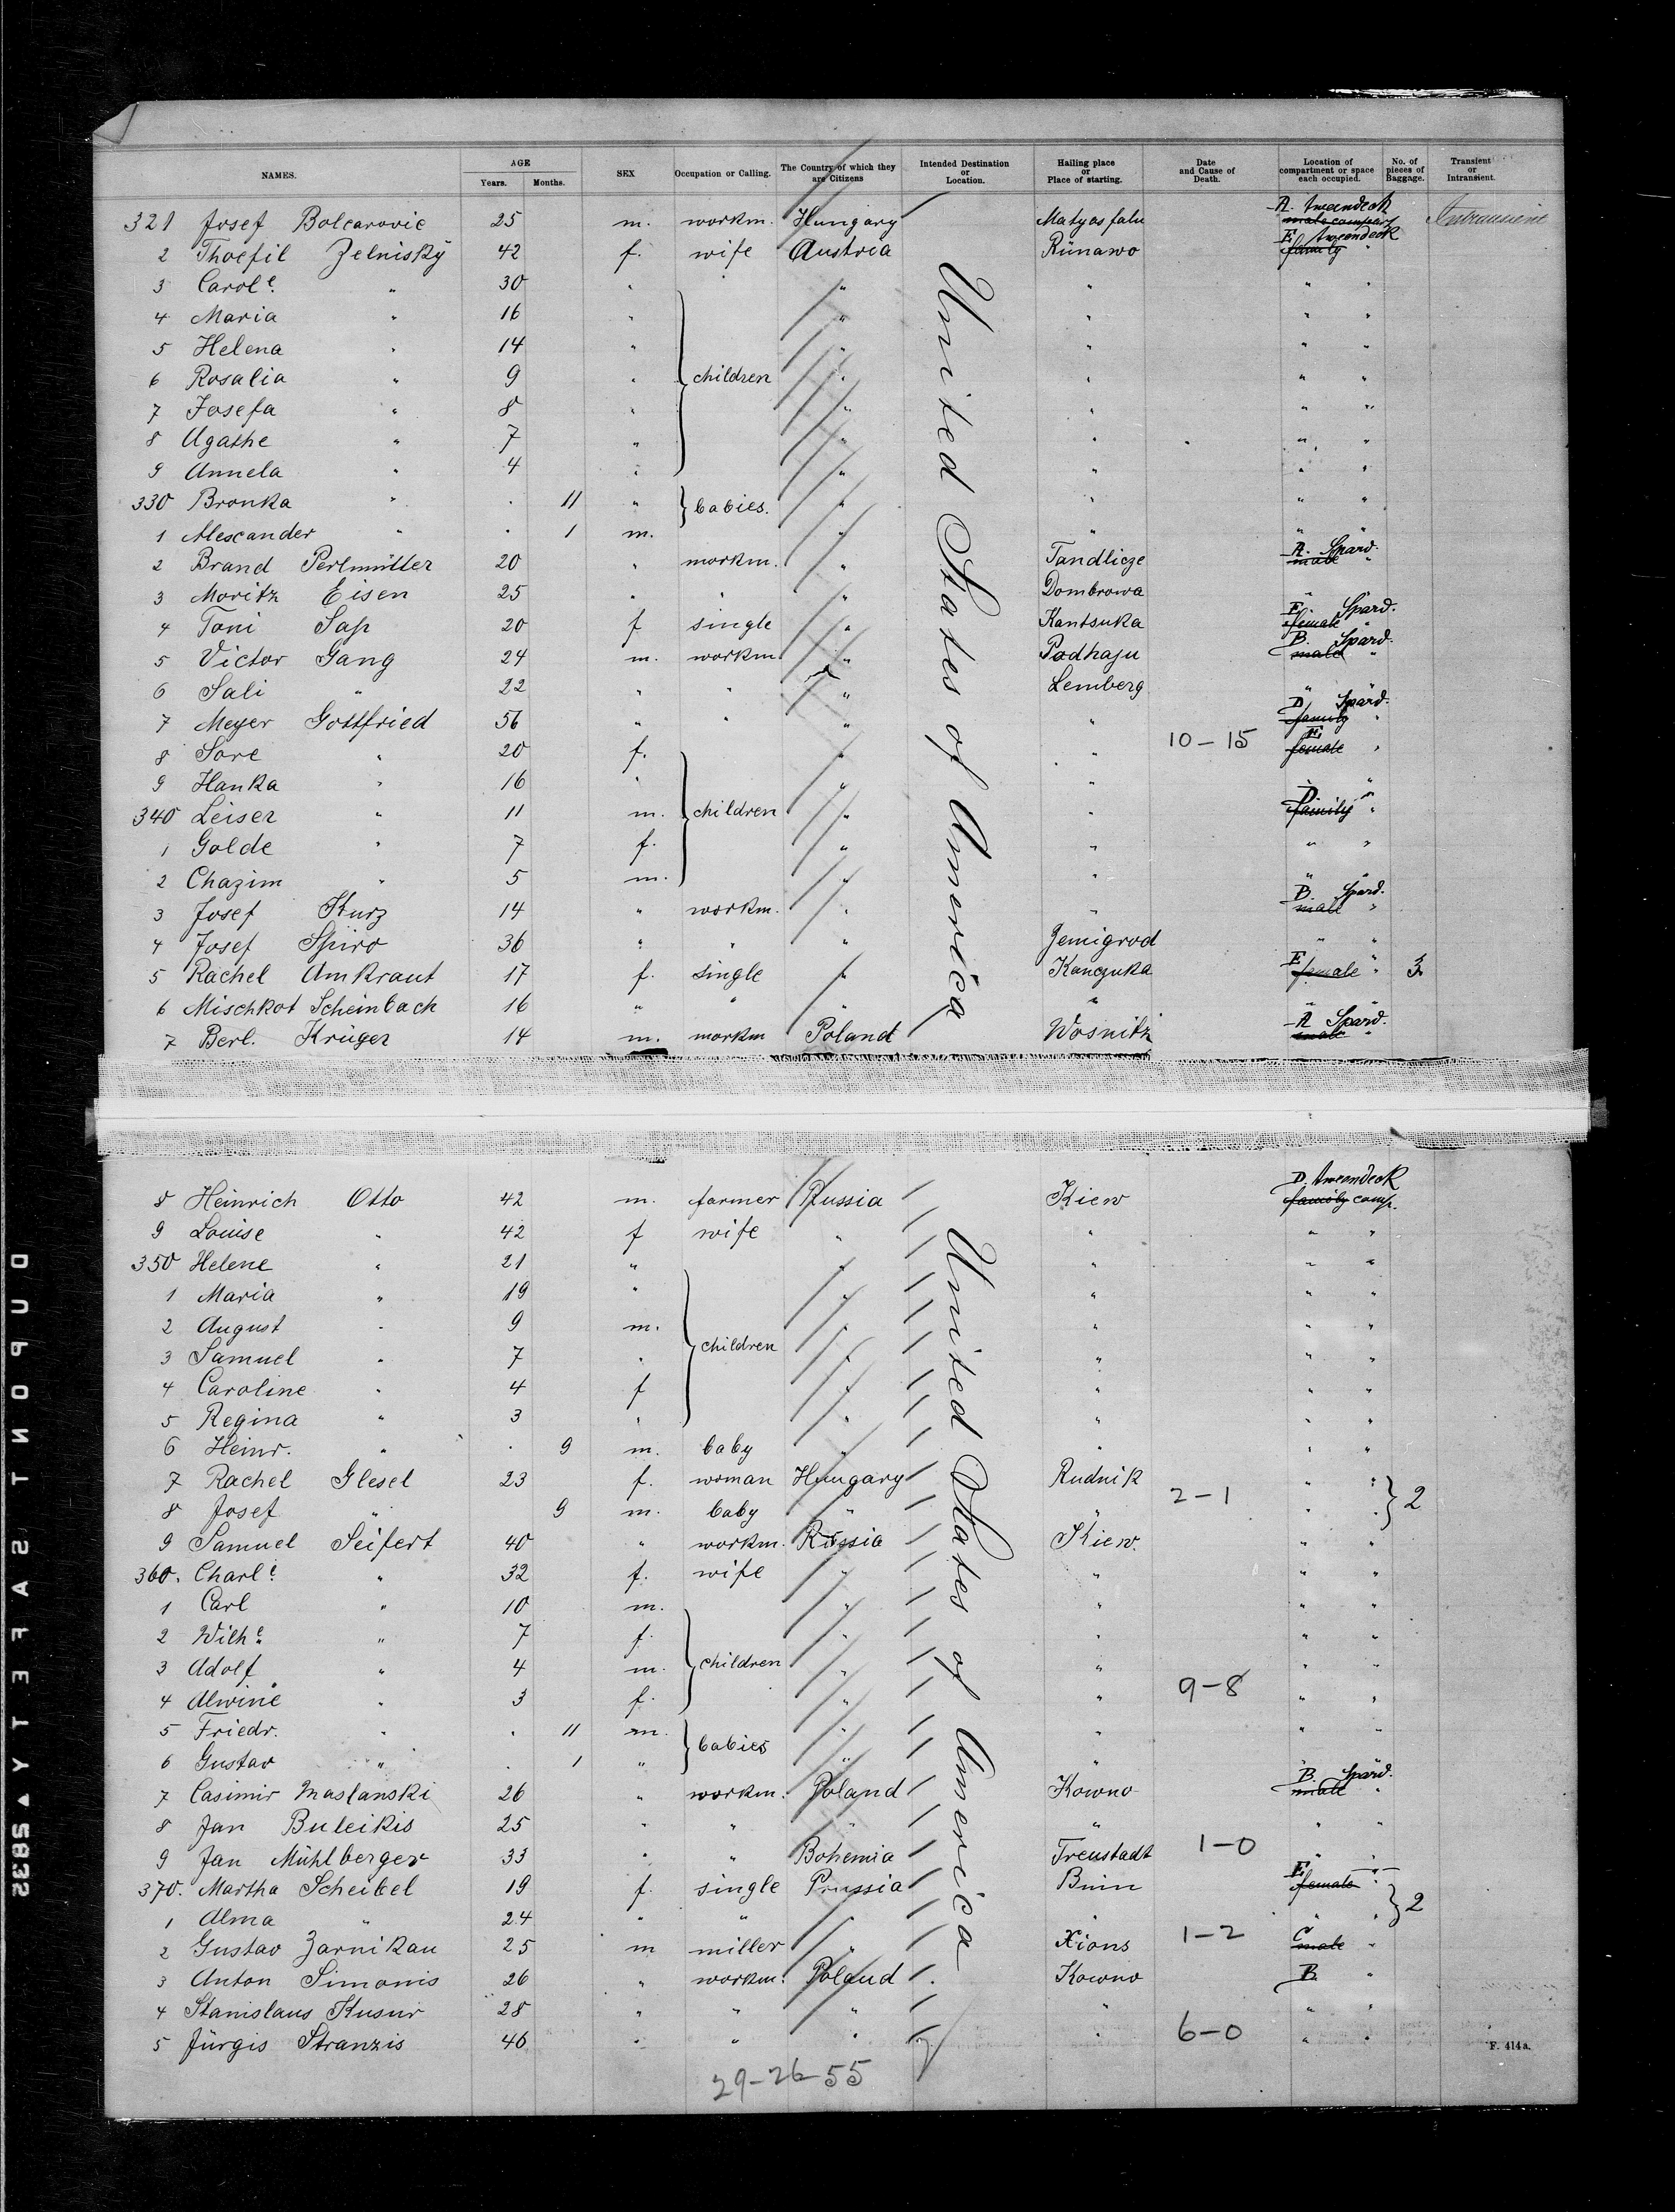 NAMES. AGE Years. Months. SEX Occupation or Calling. The Country of which they are Citizens Intended Destination or Location. Hailing place or Place of starting. Date and Cause of Death. Location of compartment or space each occupied. No. of pieces of Baggage. Transient or Intransient.
321 Josef Bolcarovic 25 m. workm. Hungary Matyasfalu A. tweendeck Intransient
2 Thoefil Zelnisky 42 f. wife Austria Rünawo E. tweendeck family "
3 Carol.e " 30 " " " " " "
4 Maria " 16 " " " " "
5 Helena " 14 " " " " "
6 Rosalia " 9 " children " " " "
7 Josefa " 8 " " " " "
8 Agathe " 7 " " " " "
9 Annela " 4 " " " " "
330 Bronka " . 11 " babies. " " " "
1 Alexander " . 1 m. " "
2 Brand Perlmütter 20 " workm. " Tandlicze A. Spard. male "
3 Moritz Eisen 25 " " " Dombrowa " "
4 Toni Sap 20 f single " Kantsuka E. Spard. female "
5 Victor Gang 24 m. workm " Podhaju B. Spard. male "
6 Sali " 22 " " " Lemberg " "
7 Meyer Gottfried 56 " " " " D. Spard. family "
8 Sore " 20 f. " " 10-15 E. female "
9 Hanka " 16 " " " " "
340 Leiser " 11 m. children " " D. family "
1 Golde " 7 f. " " " "
2 Chazim " 5 m. " " " "
3 Josef Kurz 14 " workm. " " B. Spard. male "
4 Josef Spiro 36 " " " Zemigrod " "
5 Rachel Amkraut 17 f. single " Kanczuka E female " 3
6 Mischkot Scheinbach 16 " " " " " "
7 Berl. Krüger 14 m. workm Poland Wosnitz A Spard. male
United States of America
8 Heinrich Otto 42 m. farmer Russia Kiew D. tweendeck family comp.
9 Louise " 42 f wife " " " "
350 Helene " 21 " " " " "
1 Maria " 19 " " " " "
2 August " 9 m. " " " "
3 Samuel " 7 " children " " " "
4 Caroline " 4 f " " " "
5 Regina " 3 " " " " "
6 Heinr. " . 9 m. baby " " " "
7 Rachel Glesel 23 f. woman Hungary Rudnik " "
8 Josef " 9 m. baby " " 2-1 " " 2
9 Samuel Seifert 40 " workm. Russia Kiew. " "
360. Charl.e " 32 f. wife " " " "
1 Carl " 10 m. " " " "
2 Wilh.e " 7 f. " " " "
3 Adolf " 4 m. children " " " "
4 Alwine " 3 f. " " 9-8 " "
5 Friedr. " . 11 m. " " " "
6 Gustav " . 1 " babies " "
7 Casimir Maslanski 26 " workm. Poland Kowno B. Spard. male "
8 Jan Buleikis 25 " " " " " "
9 Jan Mühlberger 33 " " Bohemia Freustadt 1-0 " "
370. Martha Scheibel 19 f. single Prussia Bnin E. female "
1 Alma " 24 " " " " " " 2
2 Gustav Zarnikau 25 m miller " Xions 1-2 C male "
3 Anton Simonis 26 " workm. Poland Kowno B. "
4 Stanislaus Kusur 28 " " " " " "
5 Jürgis Stranzis 46 " " " " 6-0 " "
United States of America
29-26-55
F. 414a.
DUPONT SAFETY 5832